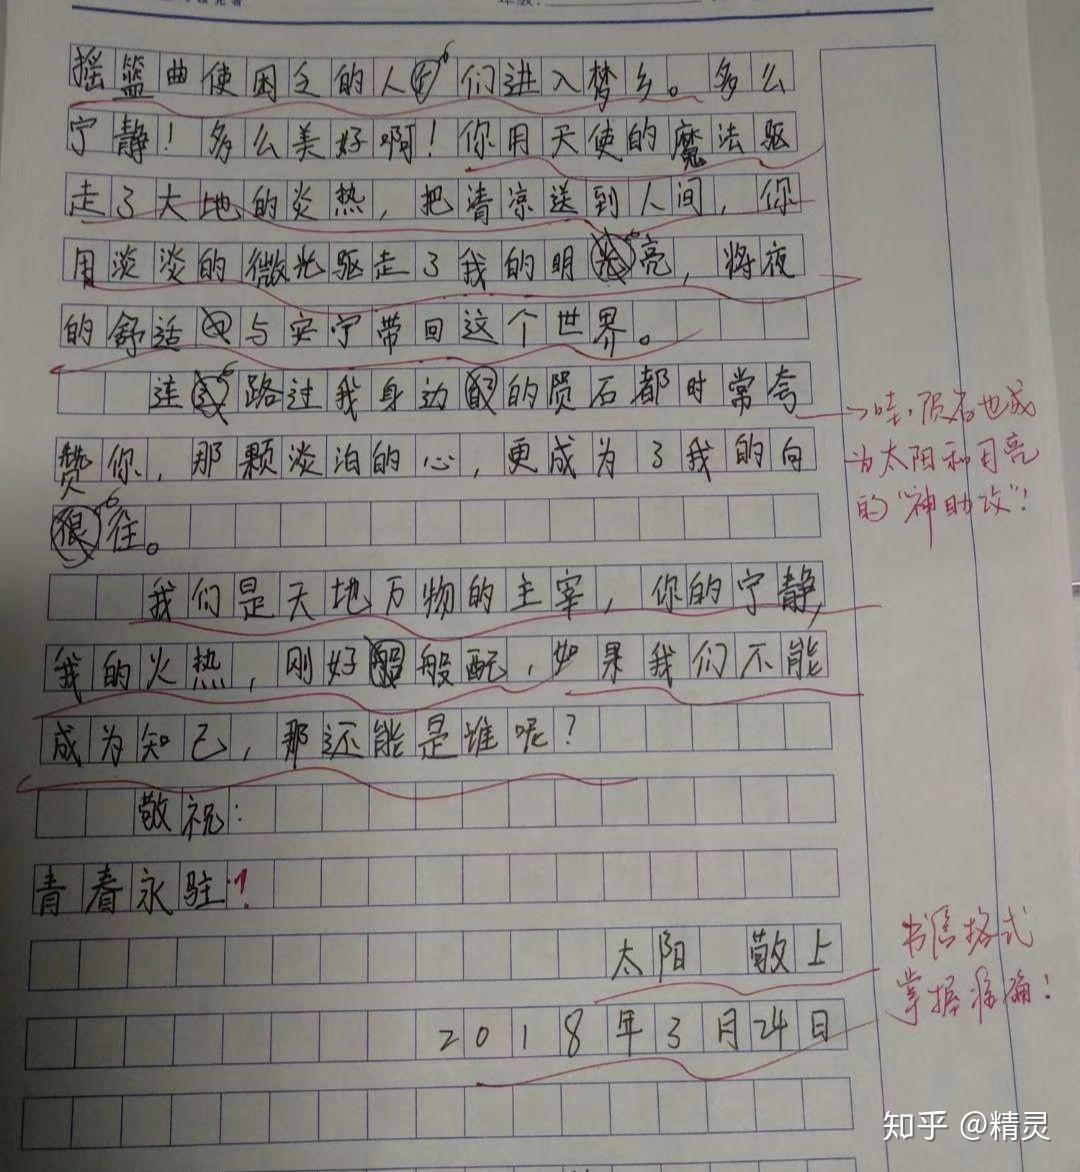 摇篮曲使困乏的人们进入梦乡。多么
宁静！多么美好啊！你用天使的魔法驱
走了大地的炎热，把清凉送到人间，你
用淡淡的微光驱走了我的明亮，将夜
的舒适与安宁带回这个世界。
连路过我身边的陨石都时常夸
赞你，那颗淡泊的心，更成为了我的向
往。
我们是天地万物的主宰，你的宁静，
我的火热，刚好般配，如果我们不能
成为知己，那还能是谁呢？
敬祝：
青春永驻！
太阳 敬上
2018年3月24日
哇，陨石也成
为太阳和月亮
的“神助攻”！
书信格式
掌握准确！
知乎 @精灵